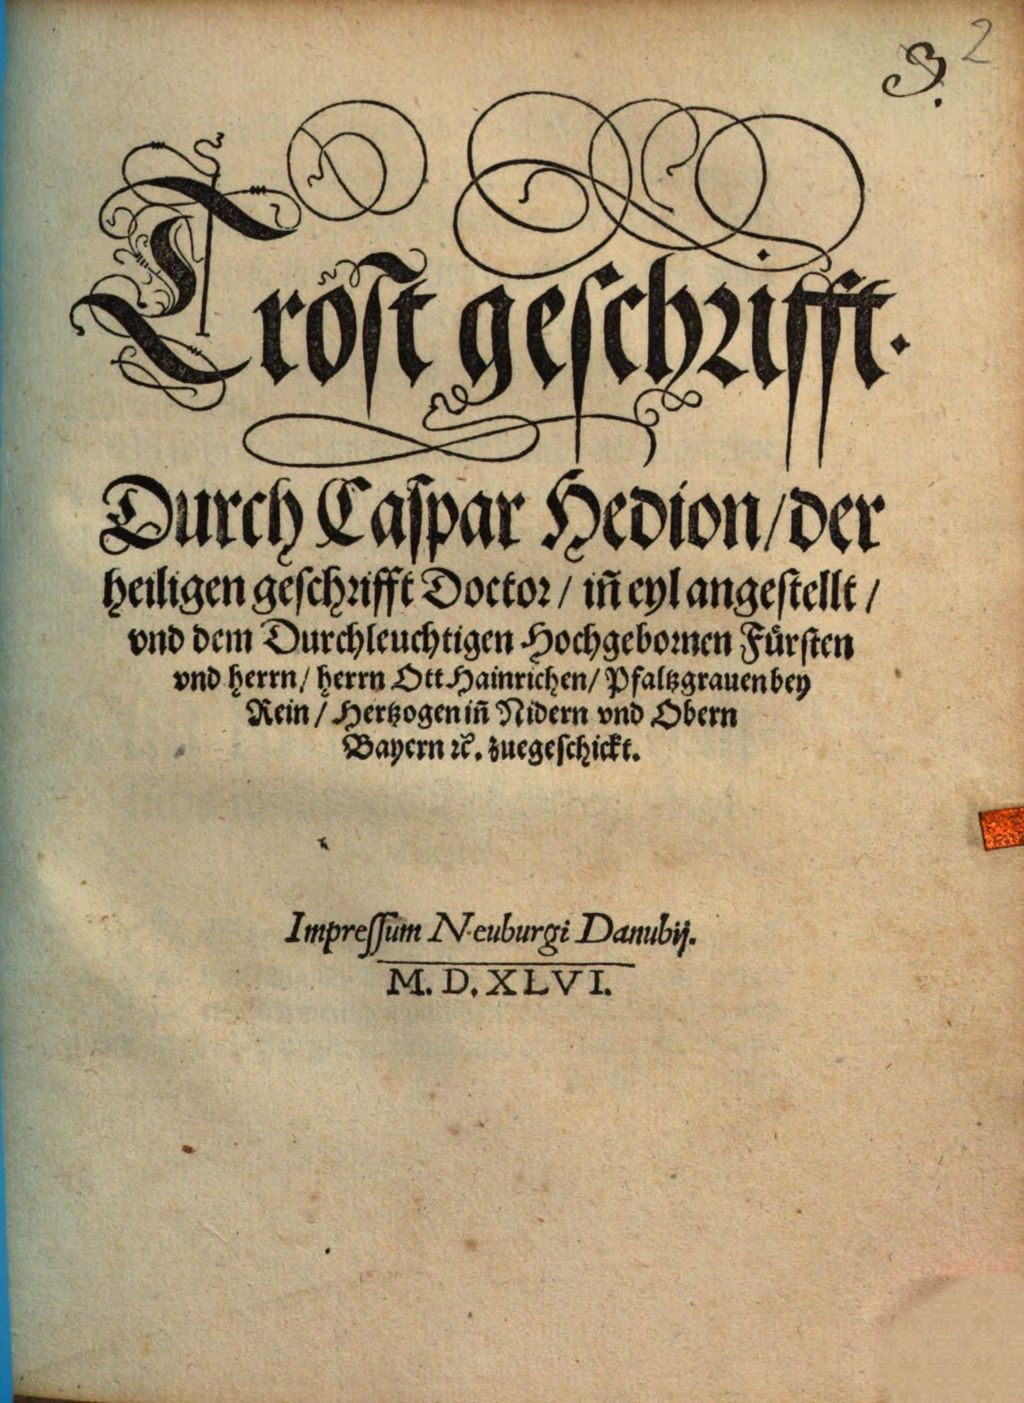 3. 2
Tröst geschrifft.
Durch Caspar Hedion / der
heiligen geschrifft Doctor / iñ eyl angestellt /
vnd dem Durchleuchtigen Hochgebornen Fürsten
vnd herrn / herrn Ott Hainrichen / Pfaltzgrauen bey
Rein / Hertzogen iñ Nidern vnd Obern
Bayern ꝛc. zuegeschickt.
Impressum Neuburgi Danubij.
M. D. XLVI.